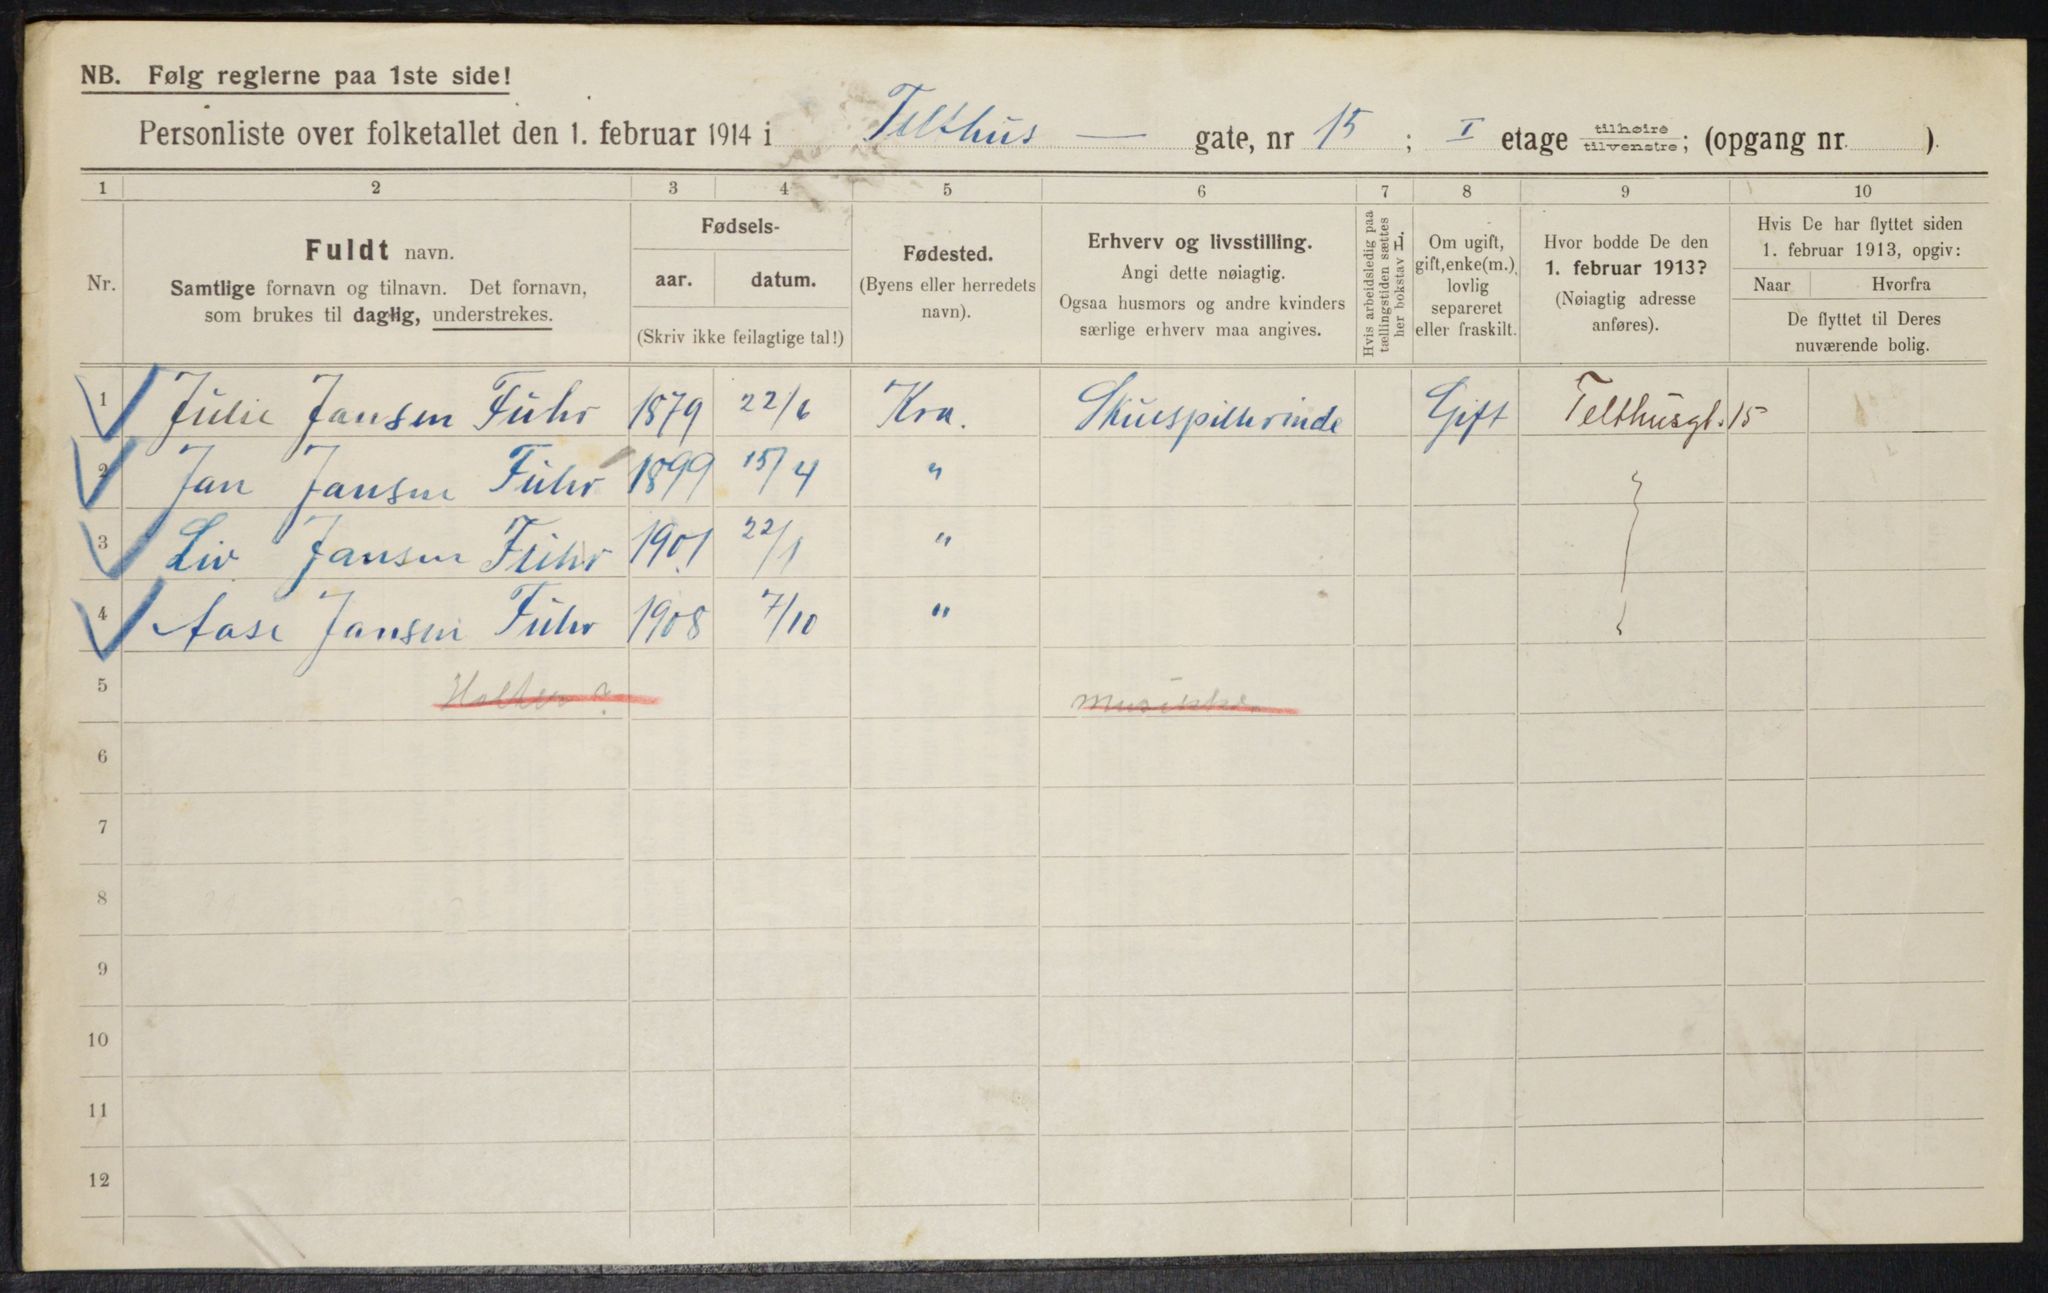 NB. Følg reglerne paa 1ste side!
Personliste over folketallet den 1. februar 1914 i Telthus — gate, nr 15 ; I etage tilhøire tilvenstre; (opgang nr. ).
1 2 3 4 5 6 7 8 9 10
Nr.
Fuldt navn.
Samtlige fornavn og tilnavn. Det fornavn,
som brukes til daglig, understrekes.
Fødsels-
aar. datum.
(Skriv ikke feilagtige tal!)
Fødested.
(Byens eller herredets
navn).
Erhverv og livsstilling.
Angi dette nøiagtig.
Ogsaa husmors og andre kvinders
særlige erhverv maa angives.
Hvis arbeidsledig paa
tællingstiden sættes
her bokstav L.
Om ugift,
gift, enke(m.),
lovlig
separeret
eller fraskilt.
Hvor bodde De den
1. februar 1913?
(Nøiagtig adresse
anføres).
Hvis De har flyttet siden
1. februar 1913, opgiv:
Naar Hvorfra
De flyttet til Deres
nuværende bolig.
1 Julie Jansen Fuhr 1879 22/6 Kra. Skuespillerinde Gift Telthusgt. 15
2 Jan Jansen Fuhr 1899 15/4 "
3 Liv Jansen Fuhr 1901 22/1 "
4 Aase Jansen Fuhr 1908 7/10 "
5
6
7
8
9
10
11
12